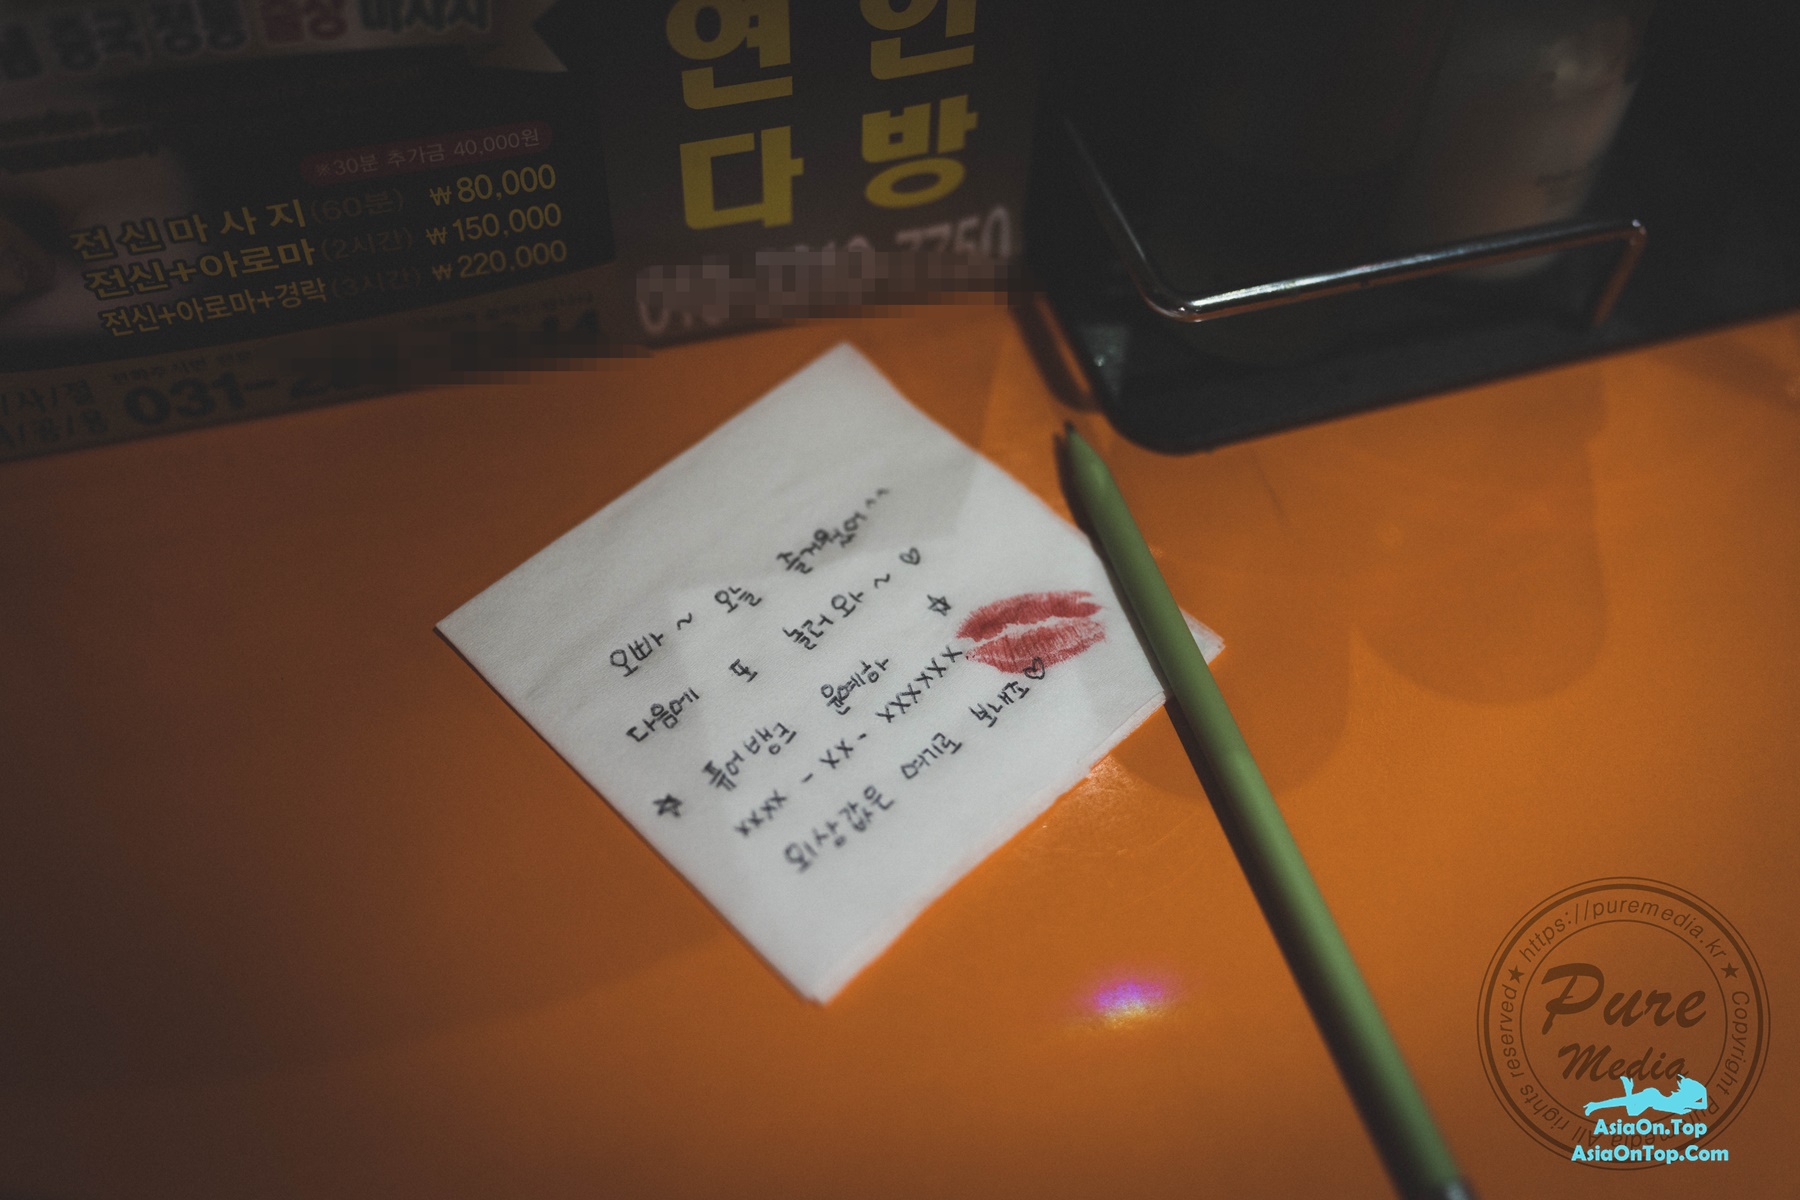 중국 정통 출상 마사지
※30분 추가금 40,000원
전신마사지(60분) ₩80,000
전신+아로마(2시간) ₩150,000
전신+아로마+경락(3시간) ₩220,000
031-
연인
다방
오빠~ 오늘 즐거웠어^^
다음에 또 놀러와~♡
☆ 퓨어뱅크 윤예항 ☆
xxxx - xx - xxxxxxx
외상값은 여기로 보내죠♡
https://puremedia.kr ★ Copyright Puremedia All rights reserved ★
Pure
Media
AsiaOn.Top
AsiaOnTop.Com